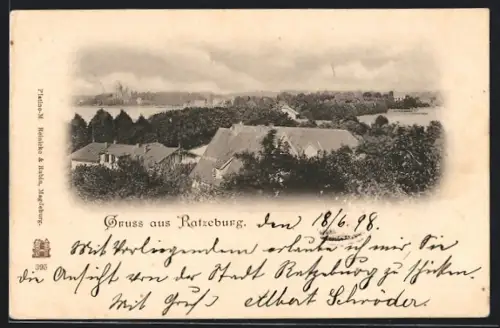 Gruss aus Ratzeburg. den 18/6. 98.
Mit Vorliegendem erlaube ich mir, Sie
die Ansicht von der Stadt Ratzeburg zu schicken.
Mit Gruß Albert Schröder.
Platino-M. Reinicke & Rubin, Magdeburg.
395